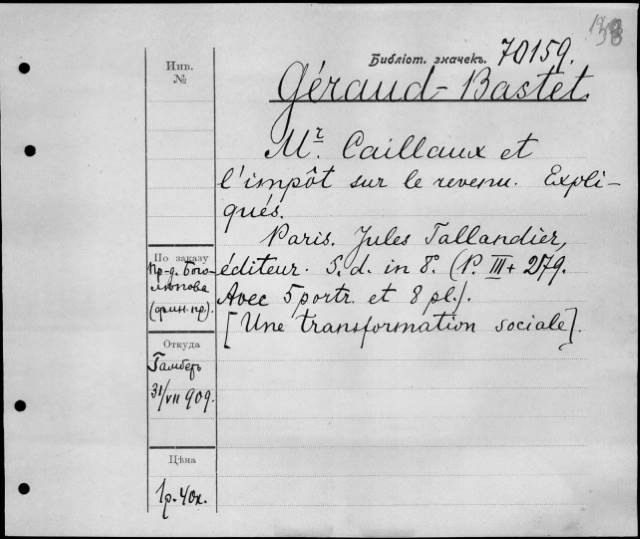 138
Библіот. значекъ. 70159.
Инв.
№
Géraud-Bastet.
Mr. Caillaux et
l'impôt sur le revenu. Expli-
qués.
Paris. Jules Tallandier,
éditeur. S. d. in 8°. (P. III + 279.
Avec 5 portr. et 8 pl.).
[Une transformation sociale].
По заказу
пр-д. Бого-
лѣпова
(фин. пр.).
Откуда
Гамберъ
31/VII 909.
Цѣна
1р. 40к.